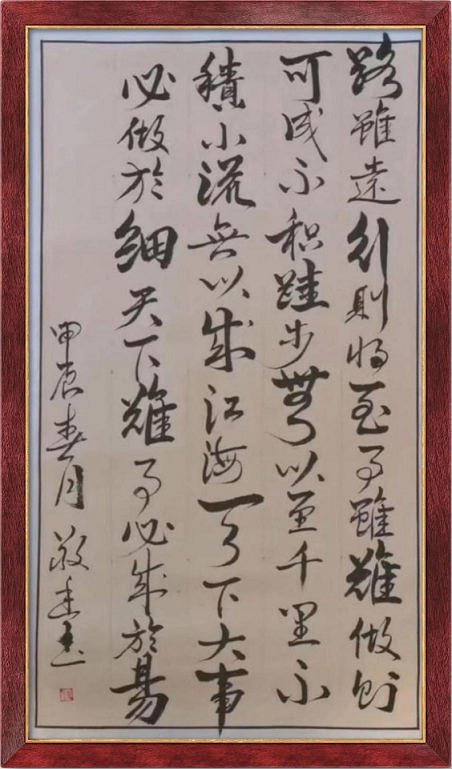 路雖遠行則將至事雖難做則
可成不积跬步無以至千里不
積小流無以成江海天下大事
必做於細天下難事必成於易
甲辰春月